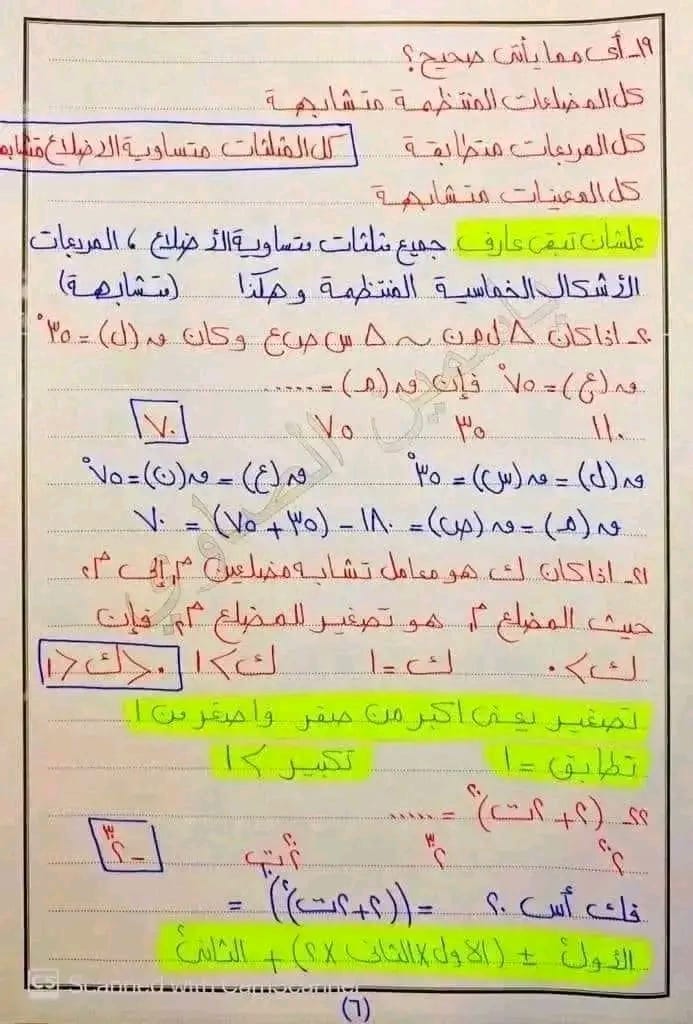 ١٩ـ أى مما يأتى صحيح؟
كل المضلعات المنتظمة متشابهة
كل المربعات متطابقة كل المثلثات متساوية الاضلاع متشابه
كل المعينات متشابهة
علشان تبقى عارف جميع مثلثات متساوية الأضلاع ، المربعات
الأشكال الخماسية المنتظمة وهكذا (متشابهة)
٢٠ـ اذا كان △ ل م ن ~ △ س ص ع وكان ق (ل) = ٣٥°
ق (ع) = ٧٥° فإن ق (م) = .....
١١٠ ٣٥ ٧٥ ٧٠
ق (ل) = ق (س) = ٣٥° ق (ع) = ق (ن) = ٧٥°
ق (م) = ق (ص) = ١٨٠ - (٣٥ + ٧٥) = ٧٠
٢١ـ اذا كان ك هو معامل تشابه مضلعين م١ إلى م٢
حيث المضلع م١ هو تصغير للمضلع م٢ فإن
ك > ٠ ك = ١ ك > ١ ٠ < ك < ١
تصغير يعنى اكبر من صفر واصغر من ١
تطابق = ١ تكبير > ١
٢٢ـ (٢ + ٢ت)٢٠ = .....
٢٢٠ ٢٣٠ ٢٢٠ت -٢٣٠
فك أس ٢٠ = ((٢ + ٢ت)٢) =
الأول٢ ± (الاول × الثانى × ٢) + الثانى٢
CS Scanned with CamScanner
(٦)